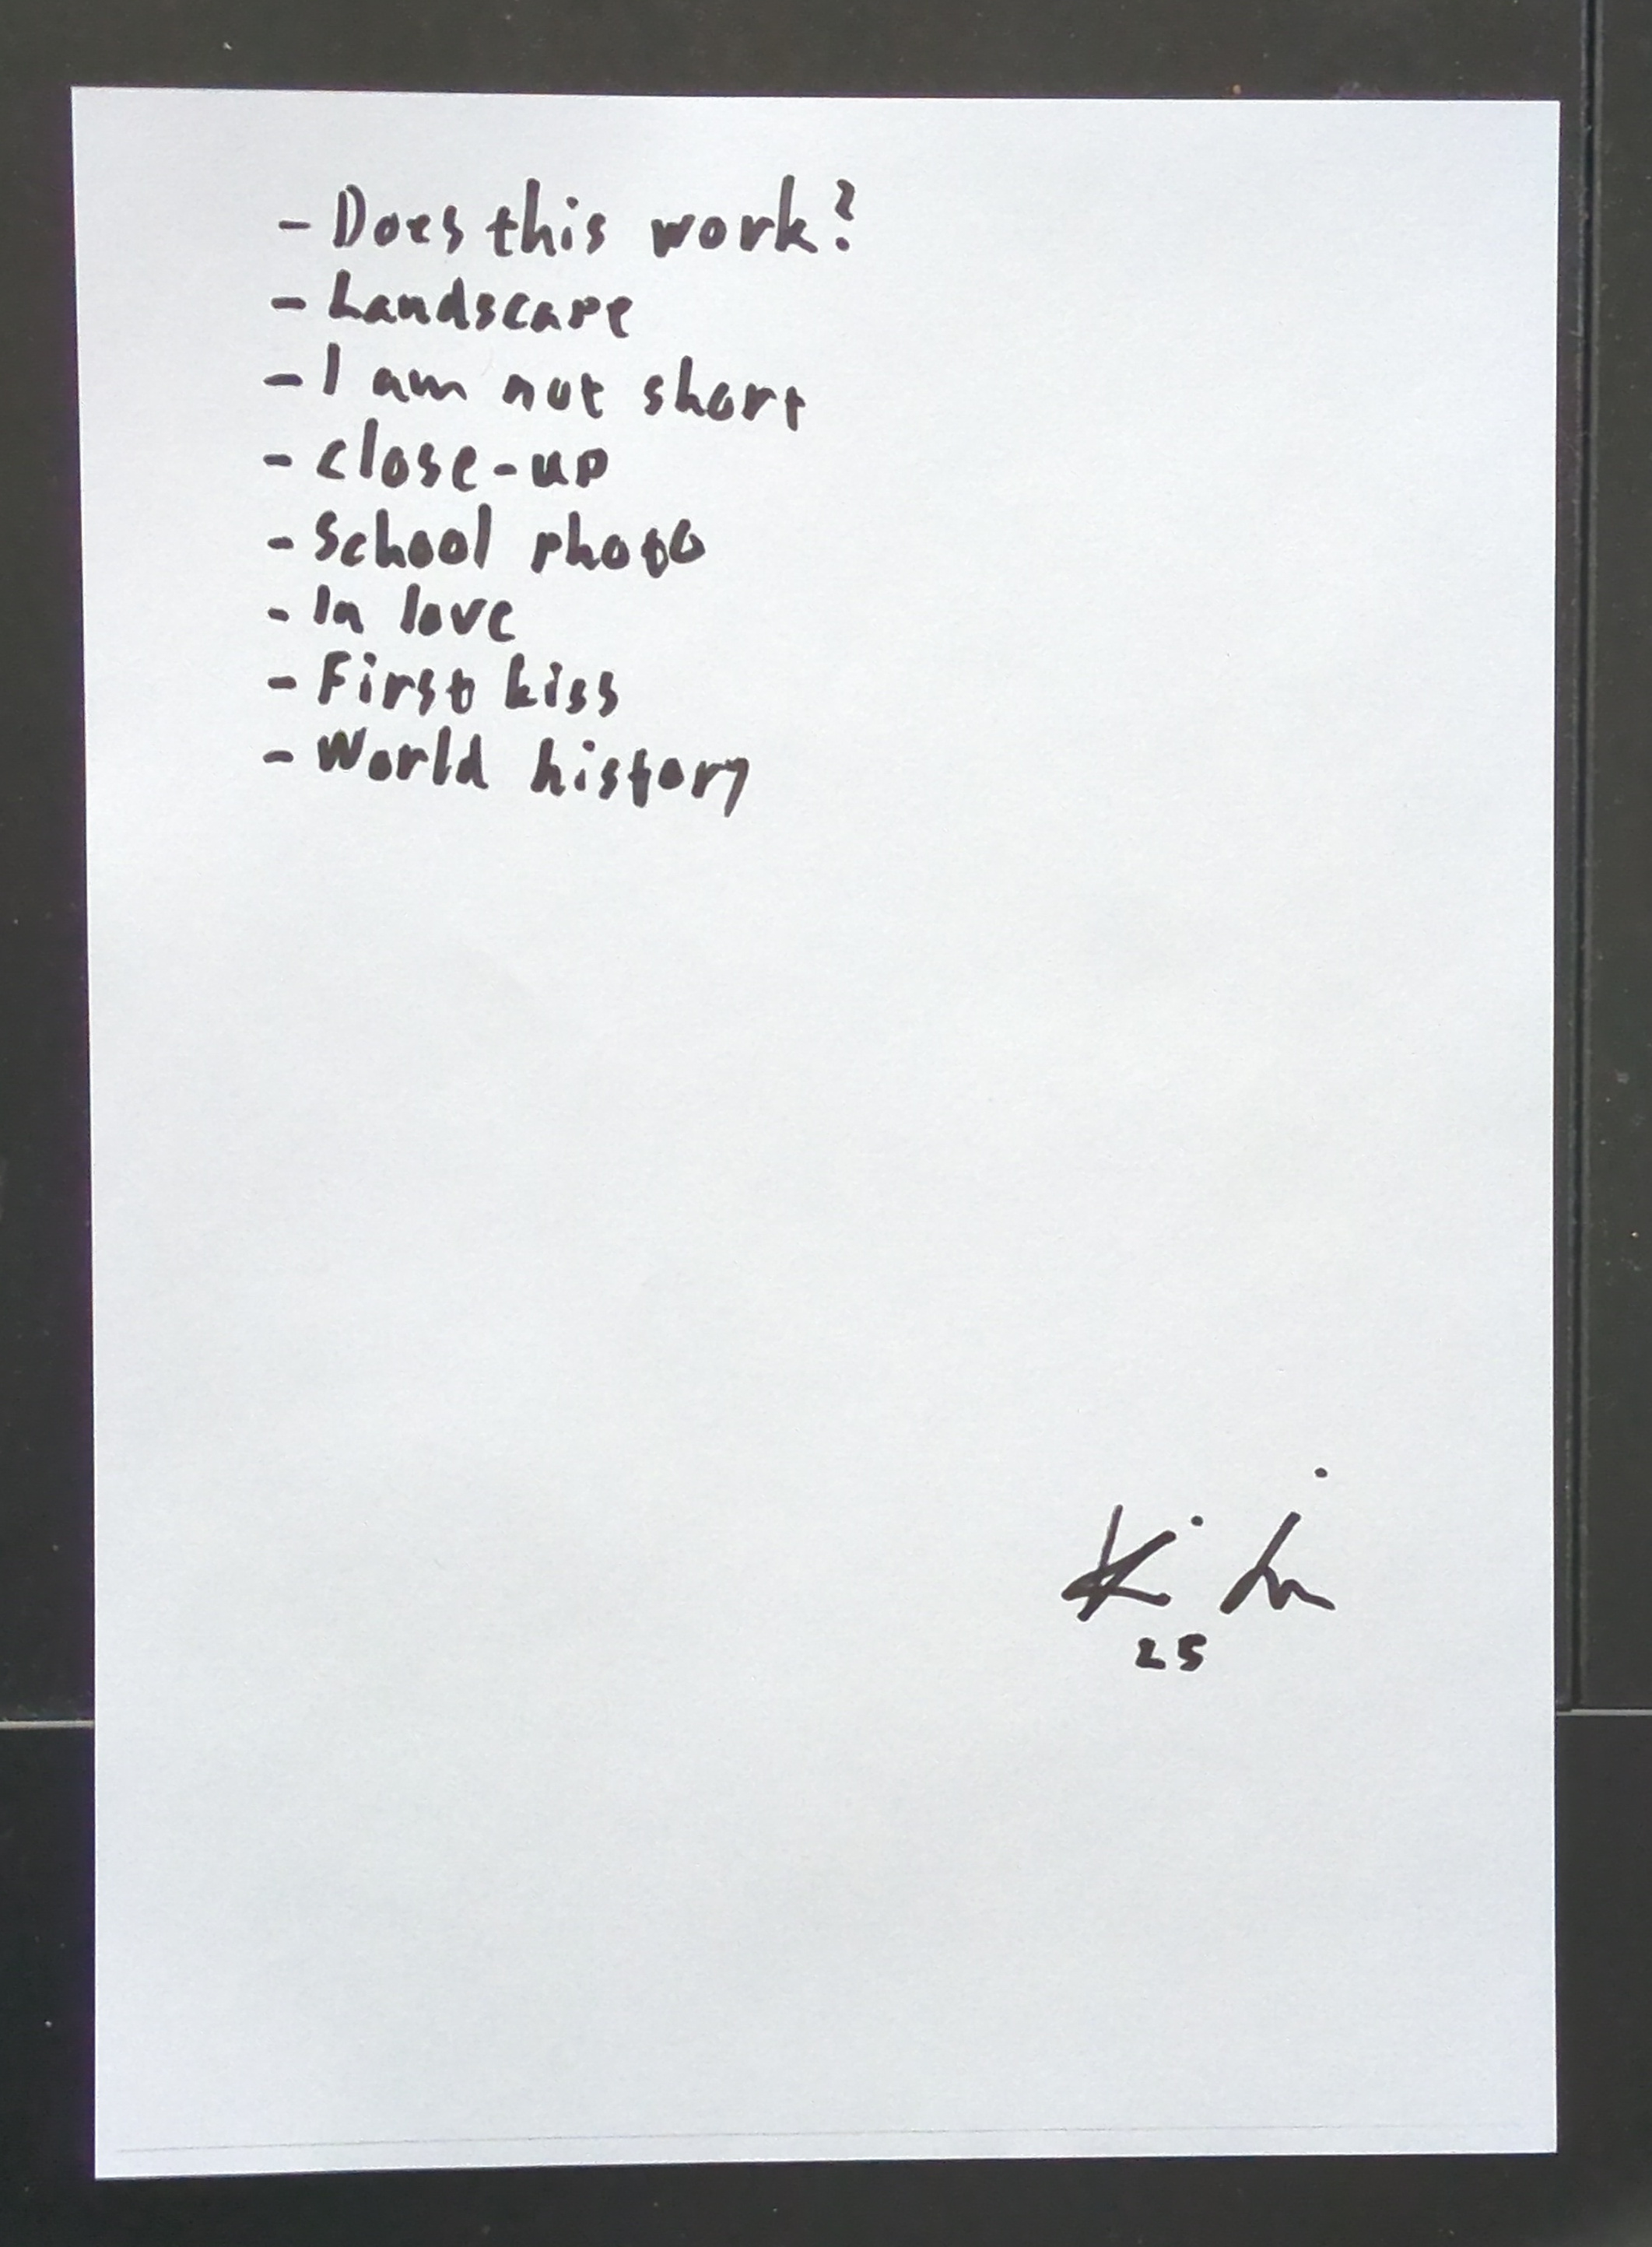 - Does this work?
- Landscape
- I am not short
- close-up
- School photo
- In love
- First kiss
- World history
25